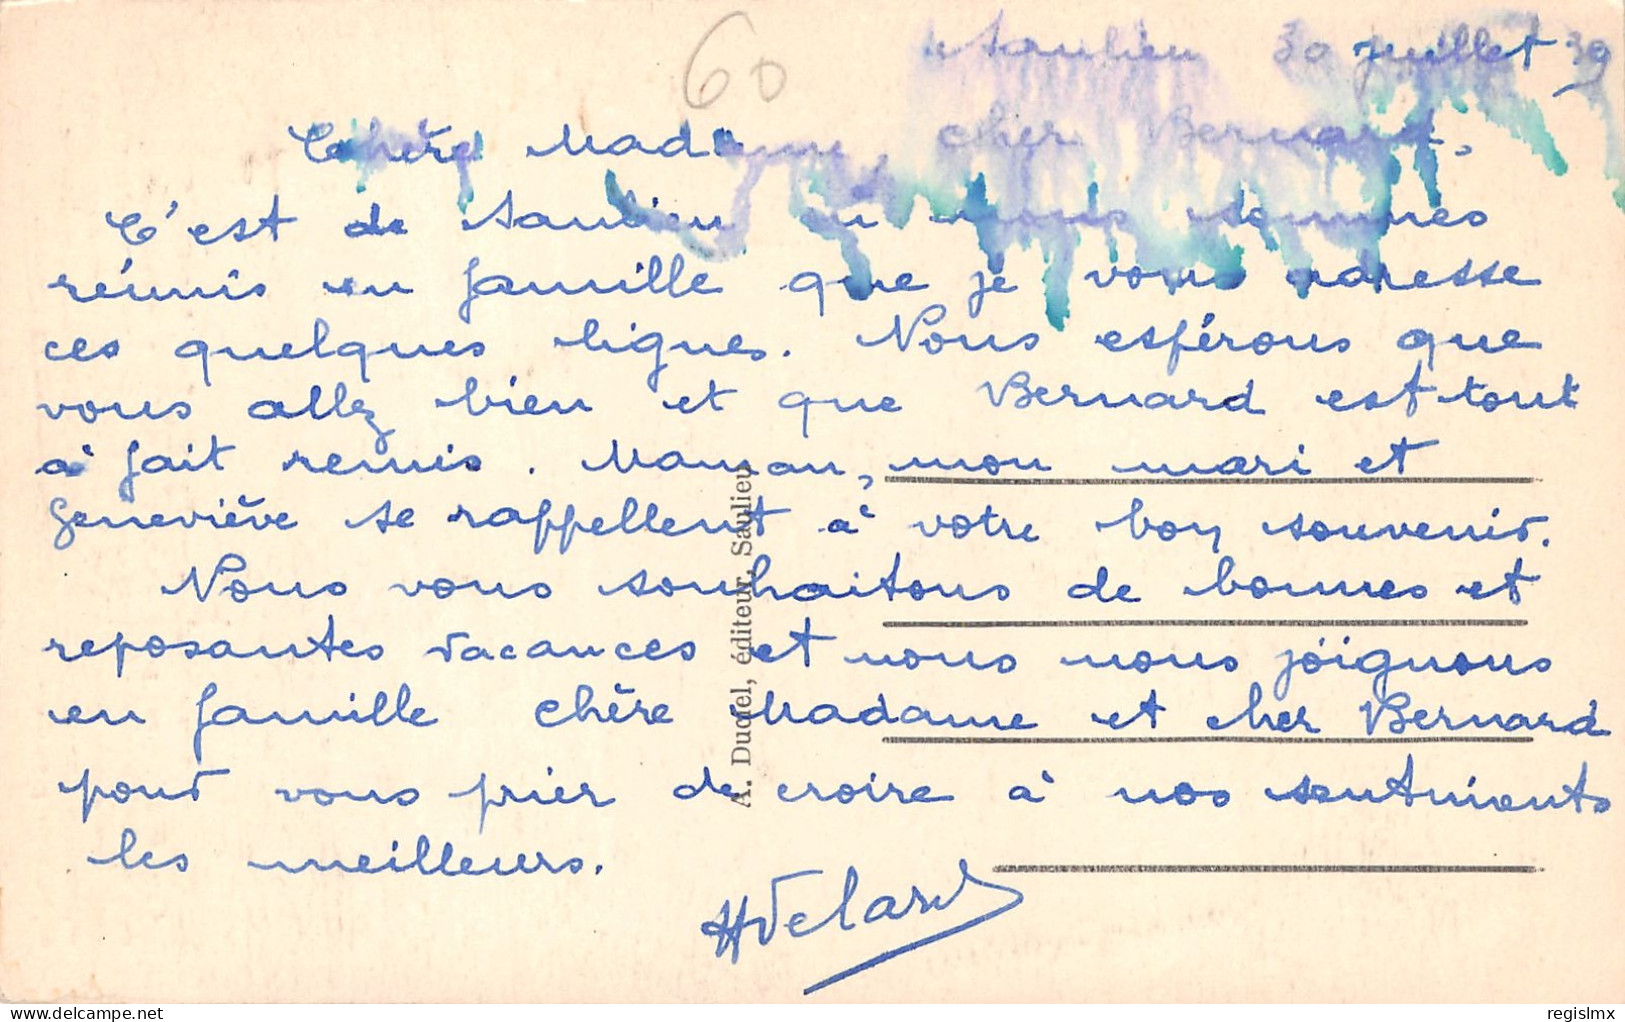 60
Saulieu 30 juillet 39
Chère Madame, cher Bernard,
C'est de Saulieu où nous sommes
réunis en famille que je vous adresse
ces quelques lignes. Nous espérons que
vous allez bien et que Bernard est tout
à fait remis. Maman, mon mari et
Geneviève se rappellent à votre bon souvenir.
Nous vous souhaitons de bonnes et
reposantes vacances et nous nous joignons
en famille chère Madame et cher Bernard
pour vous prier de croire à nos sentiments
les meilleurs.
A. Duciel, éditeur, Saulieu
delcampe.net
regislmx